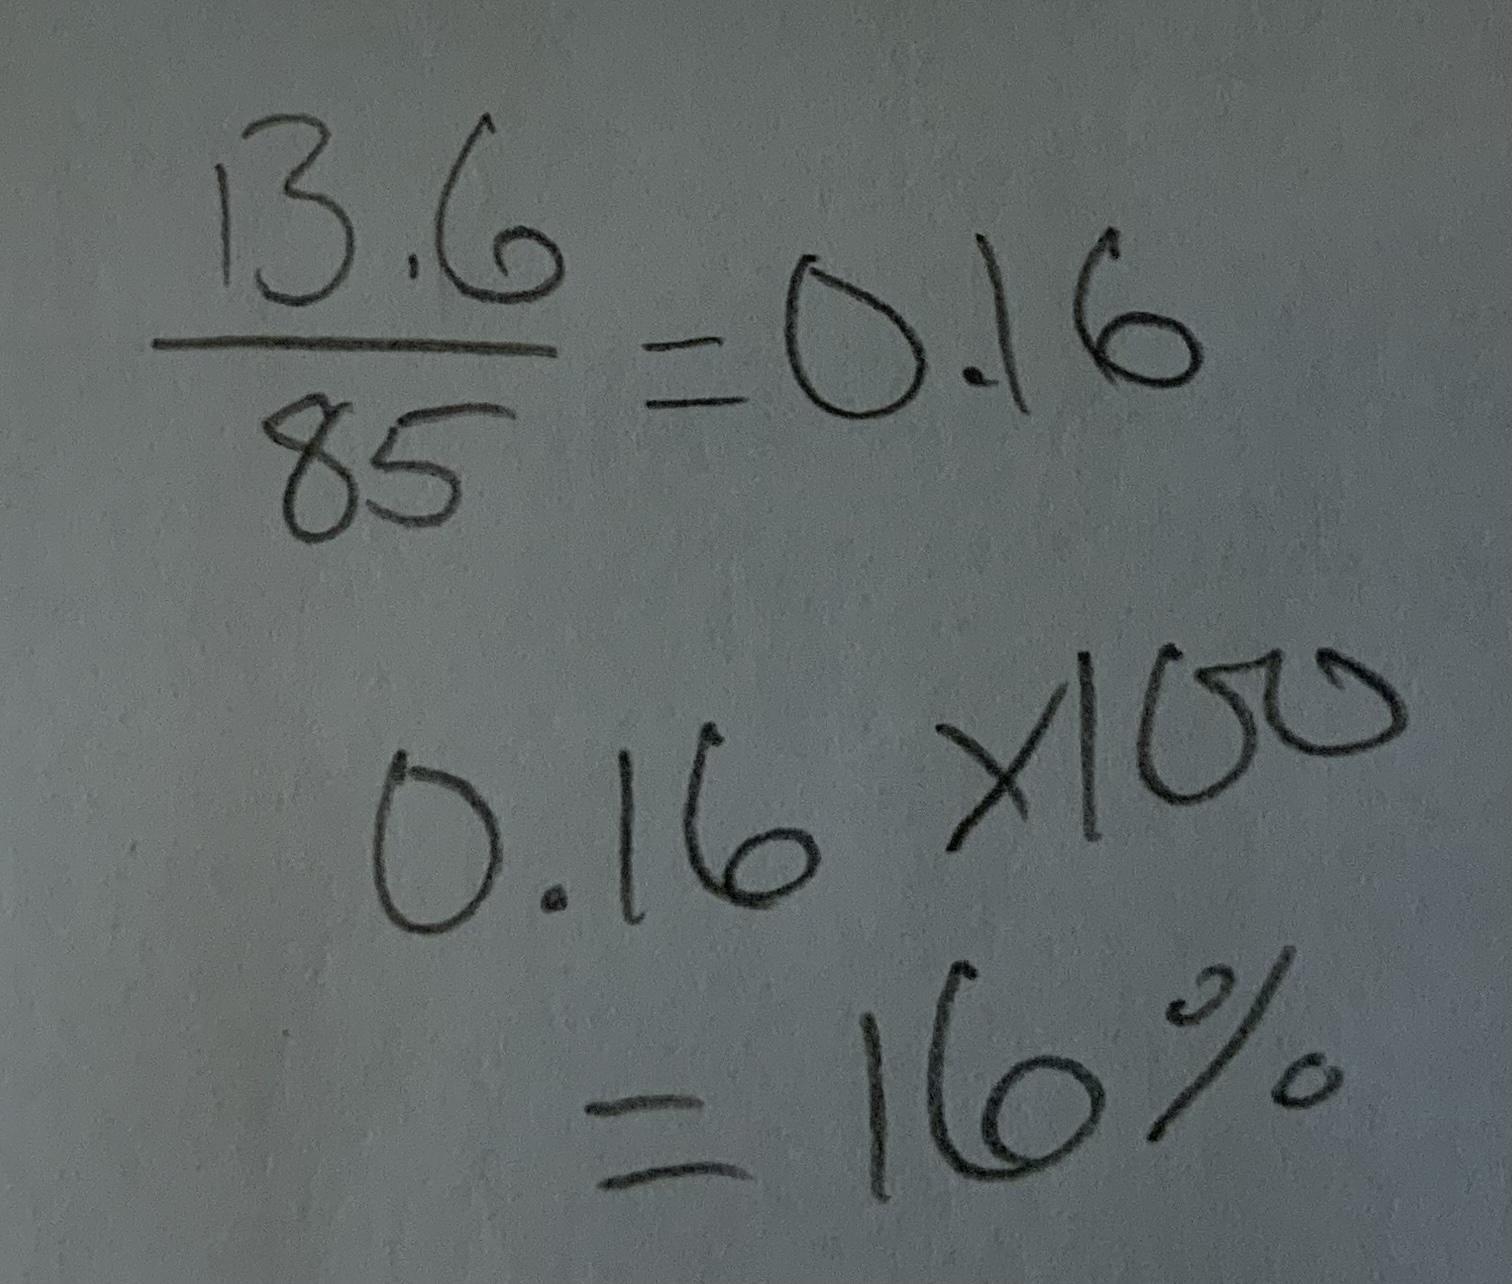 13.6
/85 = 0.16
0.16 x100
= 16%